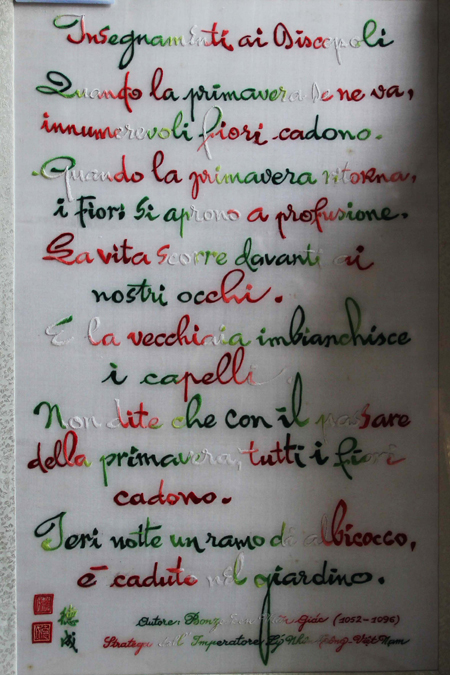 Insegnamenti ai Discepoli
Quando la primavera se ne va,
innumerevoli fiori cadono.
Quando la primavera ritorna,
i fiori si aprono a profusione.
La vita scorre davanti ai
nostri occhi.
E la vecchiaia imbianchisce
i capelli
Non dite che con il passare
della primavera, tutti i fiori
cadono.
Ieri notte un ramo di albicocco,
è caduto nel giardino.
德成
Autore: Giác (1052-1096)
Stratega dell'Imperatore Lý Nhân Tông. Việt Nam